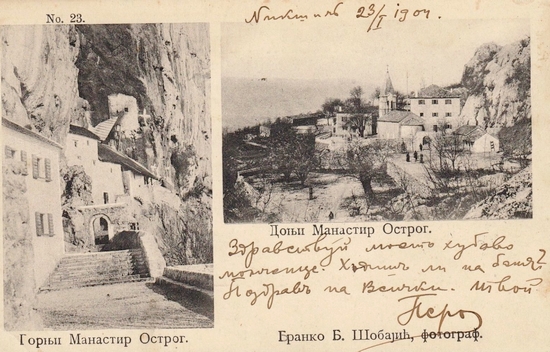 No. 23.
23/I 1904.
Доњи Манастир Острог.
Здравствуй моето хубаво
момченце. Ходишъ ли на
Поздравъ на Всички. твой
Перо
Горњи Манастир Острог.
Бранко Б. Шобајић, фотограф.